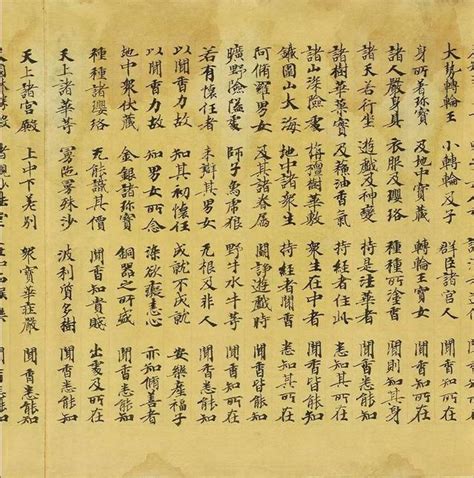 大勢轉輪王 小轉輪及子 群臣諸宮人 聞香知所在
身所著珍寶 及地中寶藏 轉輪王寶女 聞香知所在
諸人嚴身具 衣服及瓔珞 種種所塗香 聞則知其身
諸天若行坐 遊戲及神變 持是法華者 聞香悉能知
諸樹華菓實 及蘇油香氣 持經者住此 悉知其所在
諸山深嶮處 栴檀樹華敷 眾生在中者 聞香皆能知
鐵圍山大海 地中諸眾生 持經者聞香 悉知其所在
阿脩羅男女 及其諸眷屬 鬪諍遊戲時 聞香皆能知
曠野險隘處 師子象虎狼 野牛水牛等 聞香知所在
若有懷任者 未辯其男女 无根及非人 聞香悉能知
以聞香力故 知其初懷任 成就不成就 安樂產福子
以聞香力故 知男女所念 染欲癡恚心 亦知脩善者
地中眾伏藏 金銀諸珍寶 銅器之所盛 聞香悉能知
種種諸瓔珞 无能識其價 聞香知貴賤 出處及所在
天上諸華等 曼陀曼殊沙 波利質多樹 聞香悉能知
天上諸宮殿 上中下差別 眾寶華莊嚴 聞香悉能知